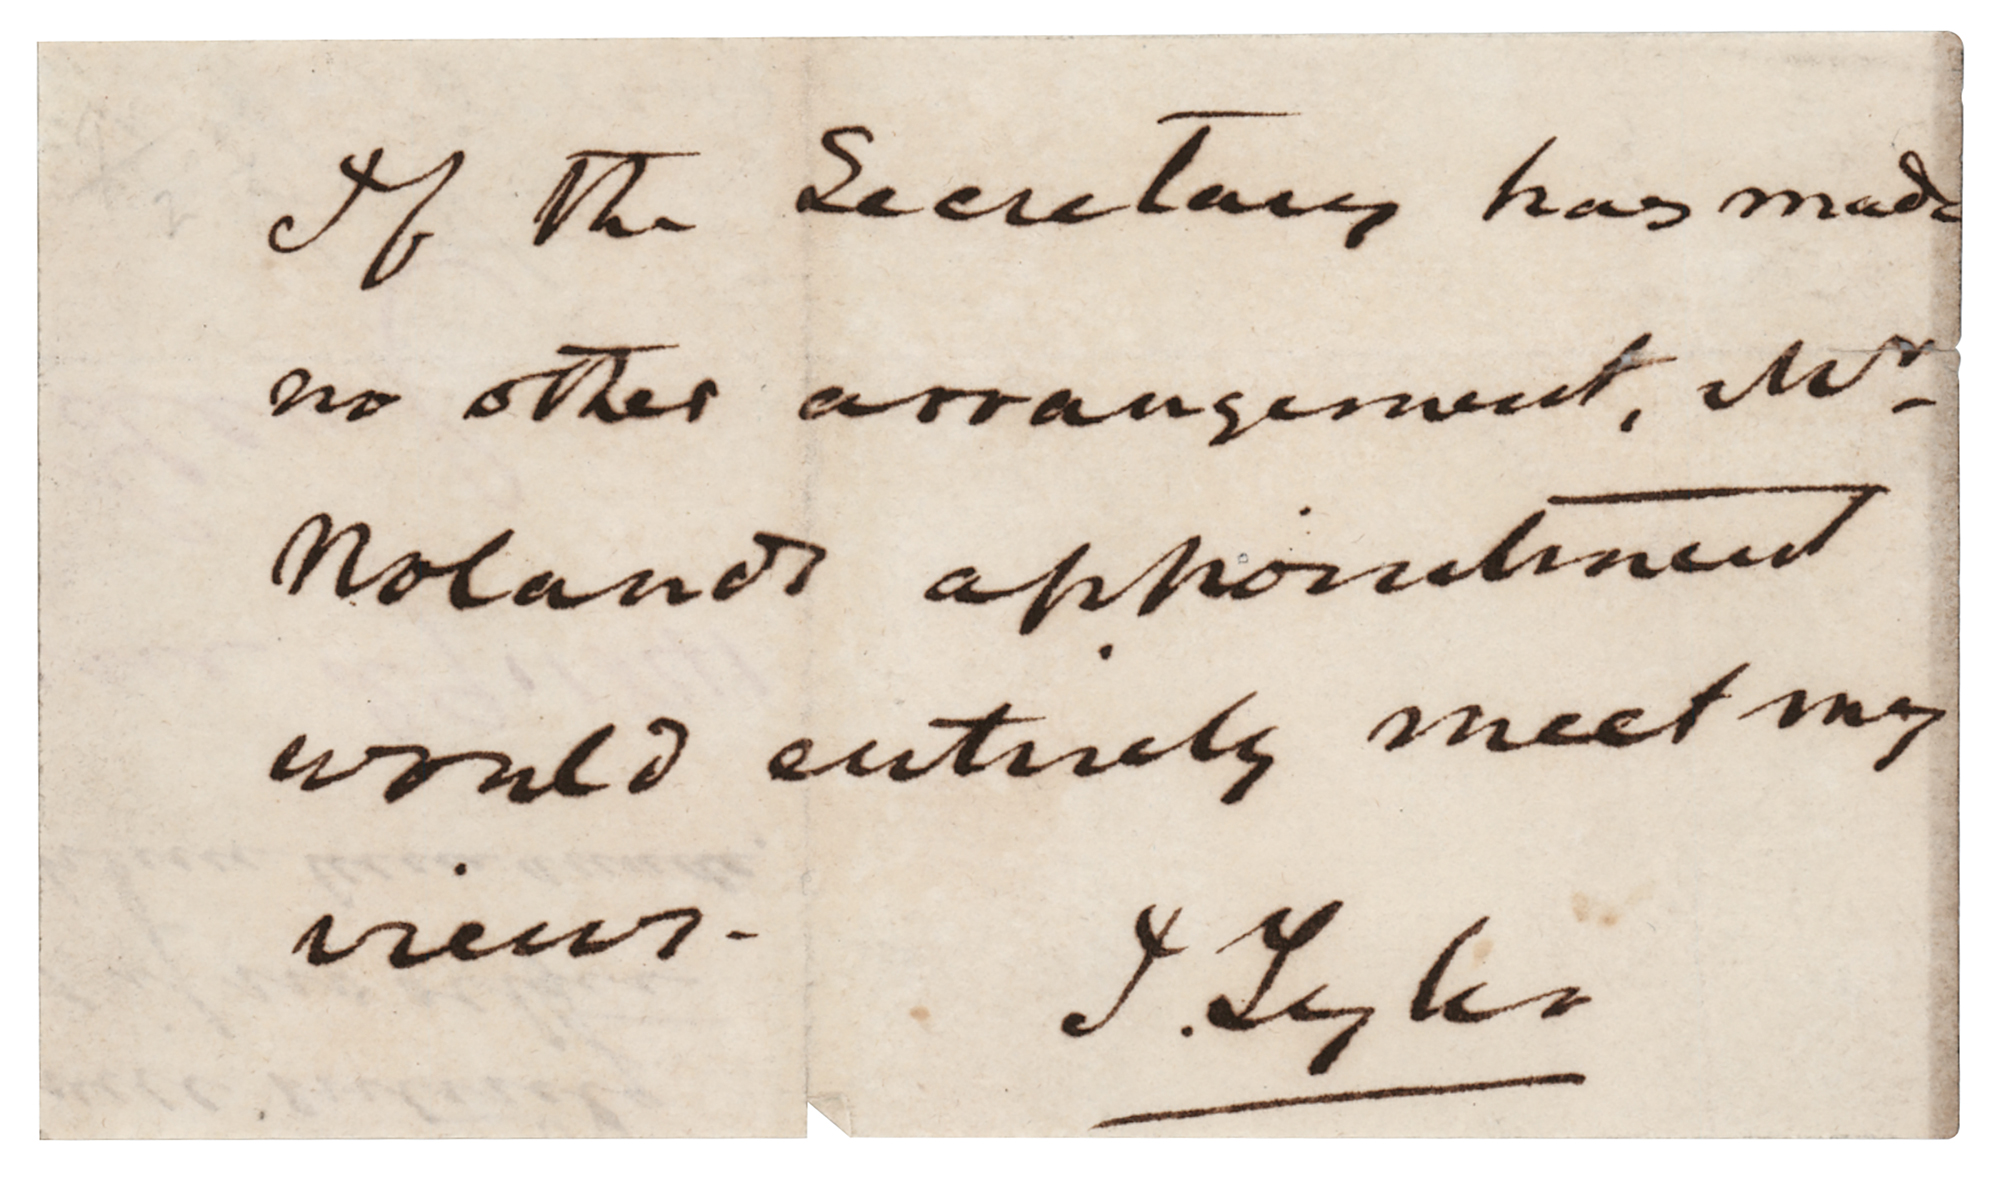 If the Secretary has made
no other arrangement, Mr
Nolands appointment
would entirely meet my
views-
J. Tyler